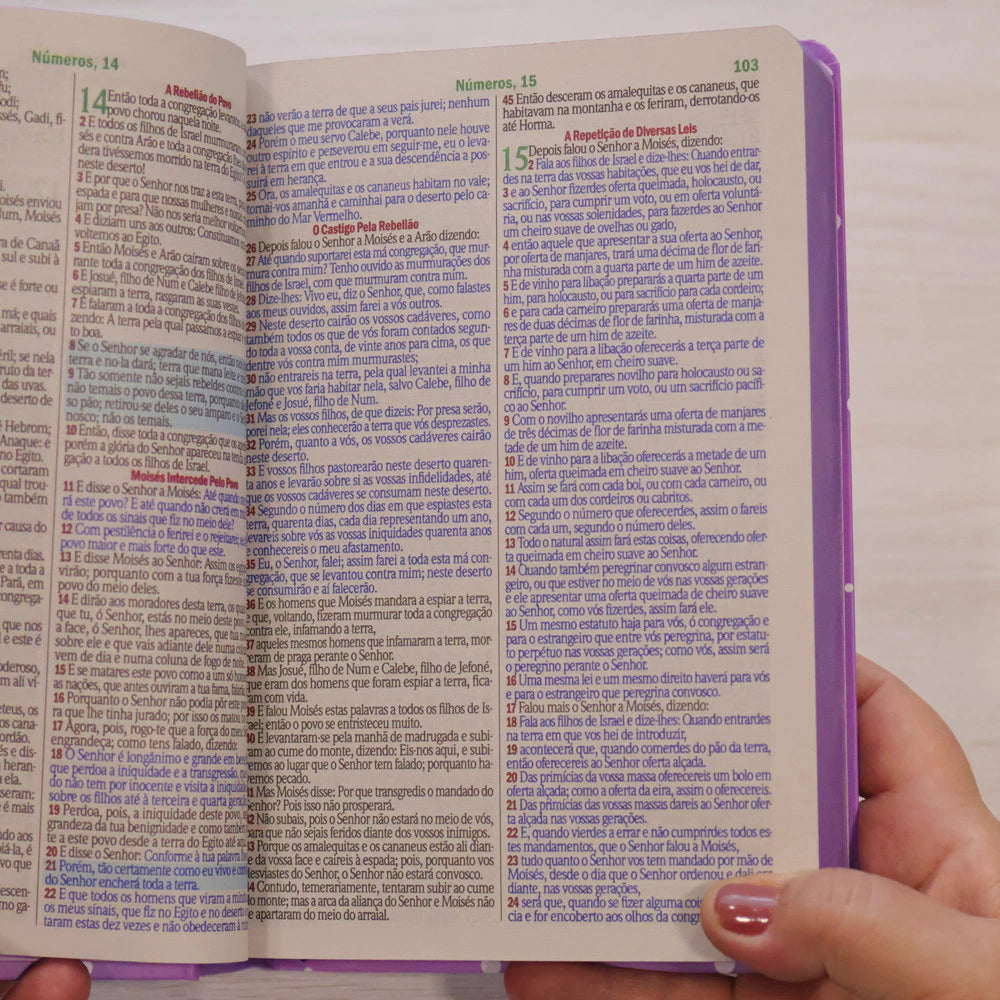 Números, 14
A Rebelião do Povo
14 Então toda a congregação
povo chorou naquela noite.
2 E todos os filhos de Israel murmuraram
sés e contra Arão e toda a congregação lhe
dera tivéssemos morrido na terra do Egito
neste deserto!
3 E por que o Senhor nos traz a esta terra,
espada e para que nossas mulheres e nossas
jam por presa? Não nos seria melhor
4 E diziam uns aos outros: Constituamos
voltemos ao Egito.
5 Então Moisés e Arão caíram sobre os
rante toda a congregação dos filhos de
6 E Josué, filho de Num e Calebe filho de
espiaram a terra, rasgaram as suas vestes.
7 E falaram a toda a congregação dos filhos
zendo: A terra pela qual passamos a espiar
to boa.
8 Se o Senhor se agradar de nós, então
terra e no-la dará; terra que mana leite
9 Tão somente não sejais rebeldes
não temais o povo dessa terra, porquanto
so pão; retirou-se deles o seu amparo e o
nosco; não os temais.
10 Então, disse toda a congregação que os
porém a glória do Senhor apareceu na
gação a todos os filhos de Israel.
Moisés Intercede Pelo Povo
11 E disse o Senhor a Moisés: Até quando
rá este povo? E até quando não crerá em
de todos os sinais que fiz no meio dele?
12 Com pestilência o ferirei e o rejeitarei,
povo maior e mais forte do que este.
13 E disse Moisés ao Senhor: Assim os
virão; porquanto com a tua força
povo do meio deles.
14 E dirão aos moradores desta terra, os
que tu, ó Senhor, estás no meio deste
a face, ó Senhor, lhes apareces, que tua
sobre ele e que vais adiante dele numa
vem de dia e numa coluna de fogo de
15 E se matares este povo como a um só
as nações, que antes ouviram a tua fama,
16 Porquanto o Senhor não podia pôr este
ra que lhe tinha jurado; por isso os matou
17 Agora, pois, rogo-te que a força do meu
engrandeça; como tens falado, dizendo:
18 O Senhor é longânimo e grande em
que perdoa a iniquidade e a transgressão,
do não tem por inocente e visita a
sobre os filhos até à terceira e quarta
19 Perdoa, pois, a iniquidade deste povo,
grandeza da tua benignidade e como também
te a este povo desde a terra do Egito até
20 E disse o Senhor: Conforme à tua palavra
21 Porém, tão certamente como eu vivo e
do Senhor encherá toda a terra.
22 E que todos os homens que viram a minha
os meus sinais, que fiz no Egito e no deserto
taram estas dez vezes e não obedeceram à
Números, 15
103
23 não verão a terra de que a seus pais jurei; nenhum
daqueles que me provocaram a verá.
24 Porém o meu servo Calebe, porquanto nele houve
outro espírito e perseverou em seguir-me, eu o leva-
rei à terra em que entrou e a sua descendência a pos-
suirá em herança.
25 Ora, os amalequitas e os cananeus habitam no vale;
tornai-vos amanhã e caminhai para o deserto pelo ca-
minho do Mar Vermelho.
O Castigo Pela Rebelião
26 Depois falou o Senhor a Moisés e a Arão dizendo:
27 Até quando suportarei esta má congregação, que mur-
mura contra mim? Tenho ouvido as murmurações dos
filhos de Israel, com que murmuram contra mim.
28 Dize-lhes: Vivo eu, diz o Senhor, que, como falastes
aos meus ouvidos, assim farei a vós outros.
29 Neste deserto cairão os vossos cadáveres, como
também todos os que de vós foram contados segun-
do toda a vossa conta, de vinte anos para cima, os que
dentre vós contra mim murmurastes;
30 não entrareis na terra, pela qual levantei a minha
mão que vos faria habitar nela, salvo Calebe, filho de
Jefoné e Josué, filho de Num.
31 Mas os vossos filhos, de que dizeis: Por presa serão,
porei nela; eles conhecerão a terra que vós desprezastes.
32 Porém, quanto a vós, os vossos cadáveres cairão
neste deserto.
33 E vossos filhos pastorearão neste deserto quaren-
ta anos e levarão sobre si as vossas infidelidades, até
que os vossos cadáveres se consumam neste deserto.
34 Segundo o número dos dias em que espiastes esta
terra, quarenta dias, cada dia representando um ano,
levareis sobre vós as vossas iniquidades quarenta anos
e conhecereis o meu afastamento.
35 Eu, o Senhor, falei; assim farei a toda esta má con-
gregação, que se levantou contra mim; neste deserto
se consumirão e aí falecerão.
36 E os homens que Moisés mandara a espiar a terra,
e que, voltando, fizeram murmurar toda a congregação
contra ele, infamando a terra,
37 aqueles mesmos homens que infamaram a terra, mor-
reram de praga perante o Senhor.
38 Mas Josué, filho de Num e Calebe, filho de Jefoné,
que eram dos homens que foram espiar a terra, fica-
ram com vida.
39 E falou Moisés estas palavras a todos os filhos de Is-
rael; então o povo se entristeceu muito.
40 E levantaram-se pela manhã de madrugada e subi-
ram ao cume do monte, dizendo: Eis-nos aqui, e subi-
remos ao lugar que o Senhor tem falado; porquanto ha-
vemos pecado.
41 Mas Moisés disse: Por que transgredis o mandado do
Senhor? Pois isso não prosperará.
42 Não subais, pois o Senhor não estará no meio de vós,
para que não sejais feridos diante dos vossos inimigos.
43 Porque os amalequitas e os cananeus estão ali dian-
e da vossa face e caireis à espada; pois, porquanto vos
desviastes do Senhor, o Senhor não estará convosco.
44 Contudo, temerariamente, tentaram subir ao cume
do monte; mas a arca da aliança do Senhor e Moisés não
e apartaram do meio do arraial.
45 Então desceram os amalequitas e os cananeus, que
habitavam na montanha e os feriram, derrotando-os
até Horma.
A Repetição de Diversas Leis
15 Depois falou o Senhor a Moisés, dizendo:
2 Fala aos filhos de Israel e dize-lhes: Quando entrar-
des na terra das vossas habitações, que eu vos hei de dar,
3 e ao Senhor fizerdes oferta queimada, holocausto, ou
sacrifício, para cumprir um voto, ou em oferta voluntá-
ria, ou nas vossas solenidades, para fazerdes ao Senhor
um cheiro suave de ovelhas ou gado,
4 então aquele que apresentar a sua oferta ao Senhor,
por oferta de manjares, trará uma décima de flor de fari-
nha misturada com a quarta parte de um him de azeite.
5 E de vinho para libação prepararás a quarta parte de um
him, para holocausto, ou para sacrifício para cada cordeiro;
6 e para cada carneiro prepararás uma oferta de manja-
res de duas décimas de flor de farinha, misturada com a
terça parte de um him de azeite.
7 E de vinho para a libação oferecerás a terça parte de
um him ao Senhor, em cheiro suave.
8 E, quando preparares novilho para holocausto ou sa-
crifício, para cumprir um voto, ou um sacrifício pacífi-
co ao Senhor.
9 Com o novilho apresentarás uma oferta de manjares
de três décimas de flor de farinha misturada com a me-
tade de um him de azeite.
10 E de vinho para a libação oferecerás a metade de um
him, oferta queimada em cheiro suave ao Senhor.
11 Assim se fará com cada boi, ou com cada carneiro, ou
com cada um dos cordeiros ou cabritos.
12 Segundo o número que oferecerdes, assim o fareis
com cada um, segundo o número deles.
13 Todo o natural assim fará estas coisas, oferecendo ofer-
ta queimada em cheiro suave ao Senhor.
14 Quando também peregrinar convosco algum estran-
geiro, ou que estiver no meio de vós nas vossas gerações
e ele apresentar uma oferta queimada de cheiro suave
ao Senhor, como vós fizerdes, assim fará ele.
15 Um mesmo estatuto haja para vós, ó congregação e
para o estrangeiro que entre vós peregrina, por estatu-
to perpétuo nas vossas gerações; como vós, assim será
o peregrino perante o Senhor.
16 Uma mesma lei e um mesmo direito haverá para vós
e para o estrangeiro que peregrina convosco.
17 Falou mais o Senhor a Moisés, dizendo:
18 Fala aos filhos de Israel e dize-lhes: Quando entrardes
na terra em que vos hei de introduzir,
19 acontecerá que, quando comerdes do pão da terra,
então oferecereis ao Senhor oferta alçada.
20 Das primícias da vossa massa oferecereis um bolo em
oferta alçada; como a oferta da eira, assim o oferecereis.
21 Das primícias das vossas massas dareis ao Senhor ofer-
ta alçada nas vossas gerações.
22 E, quando vierdes a errar e não cumprirdes todos es-
tes mandamentos, que o Senhor falou a Moisés,
23 tudo quanto o Senhor vos tem mandado por mão de
Moisés, desde o dia que o Senhor ordenou e dali
diante, nas vossas gerações,
24 será que, quando se fizer alguma
cia e for encoberto aos olhos da